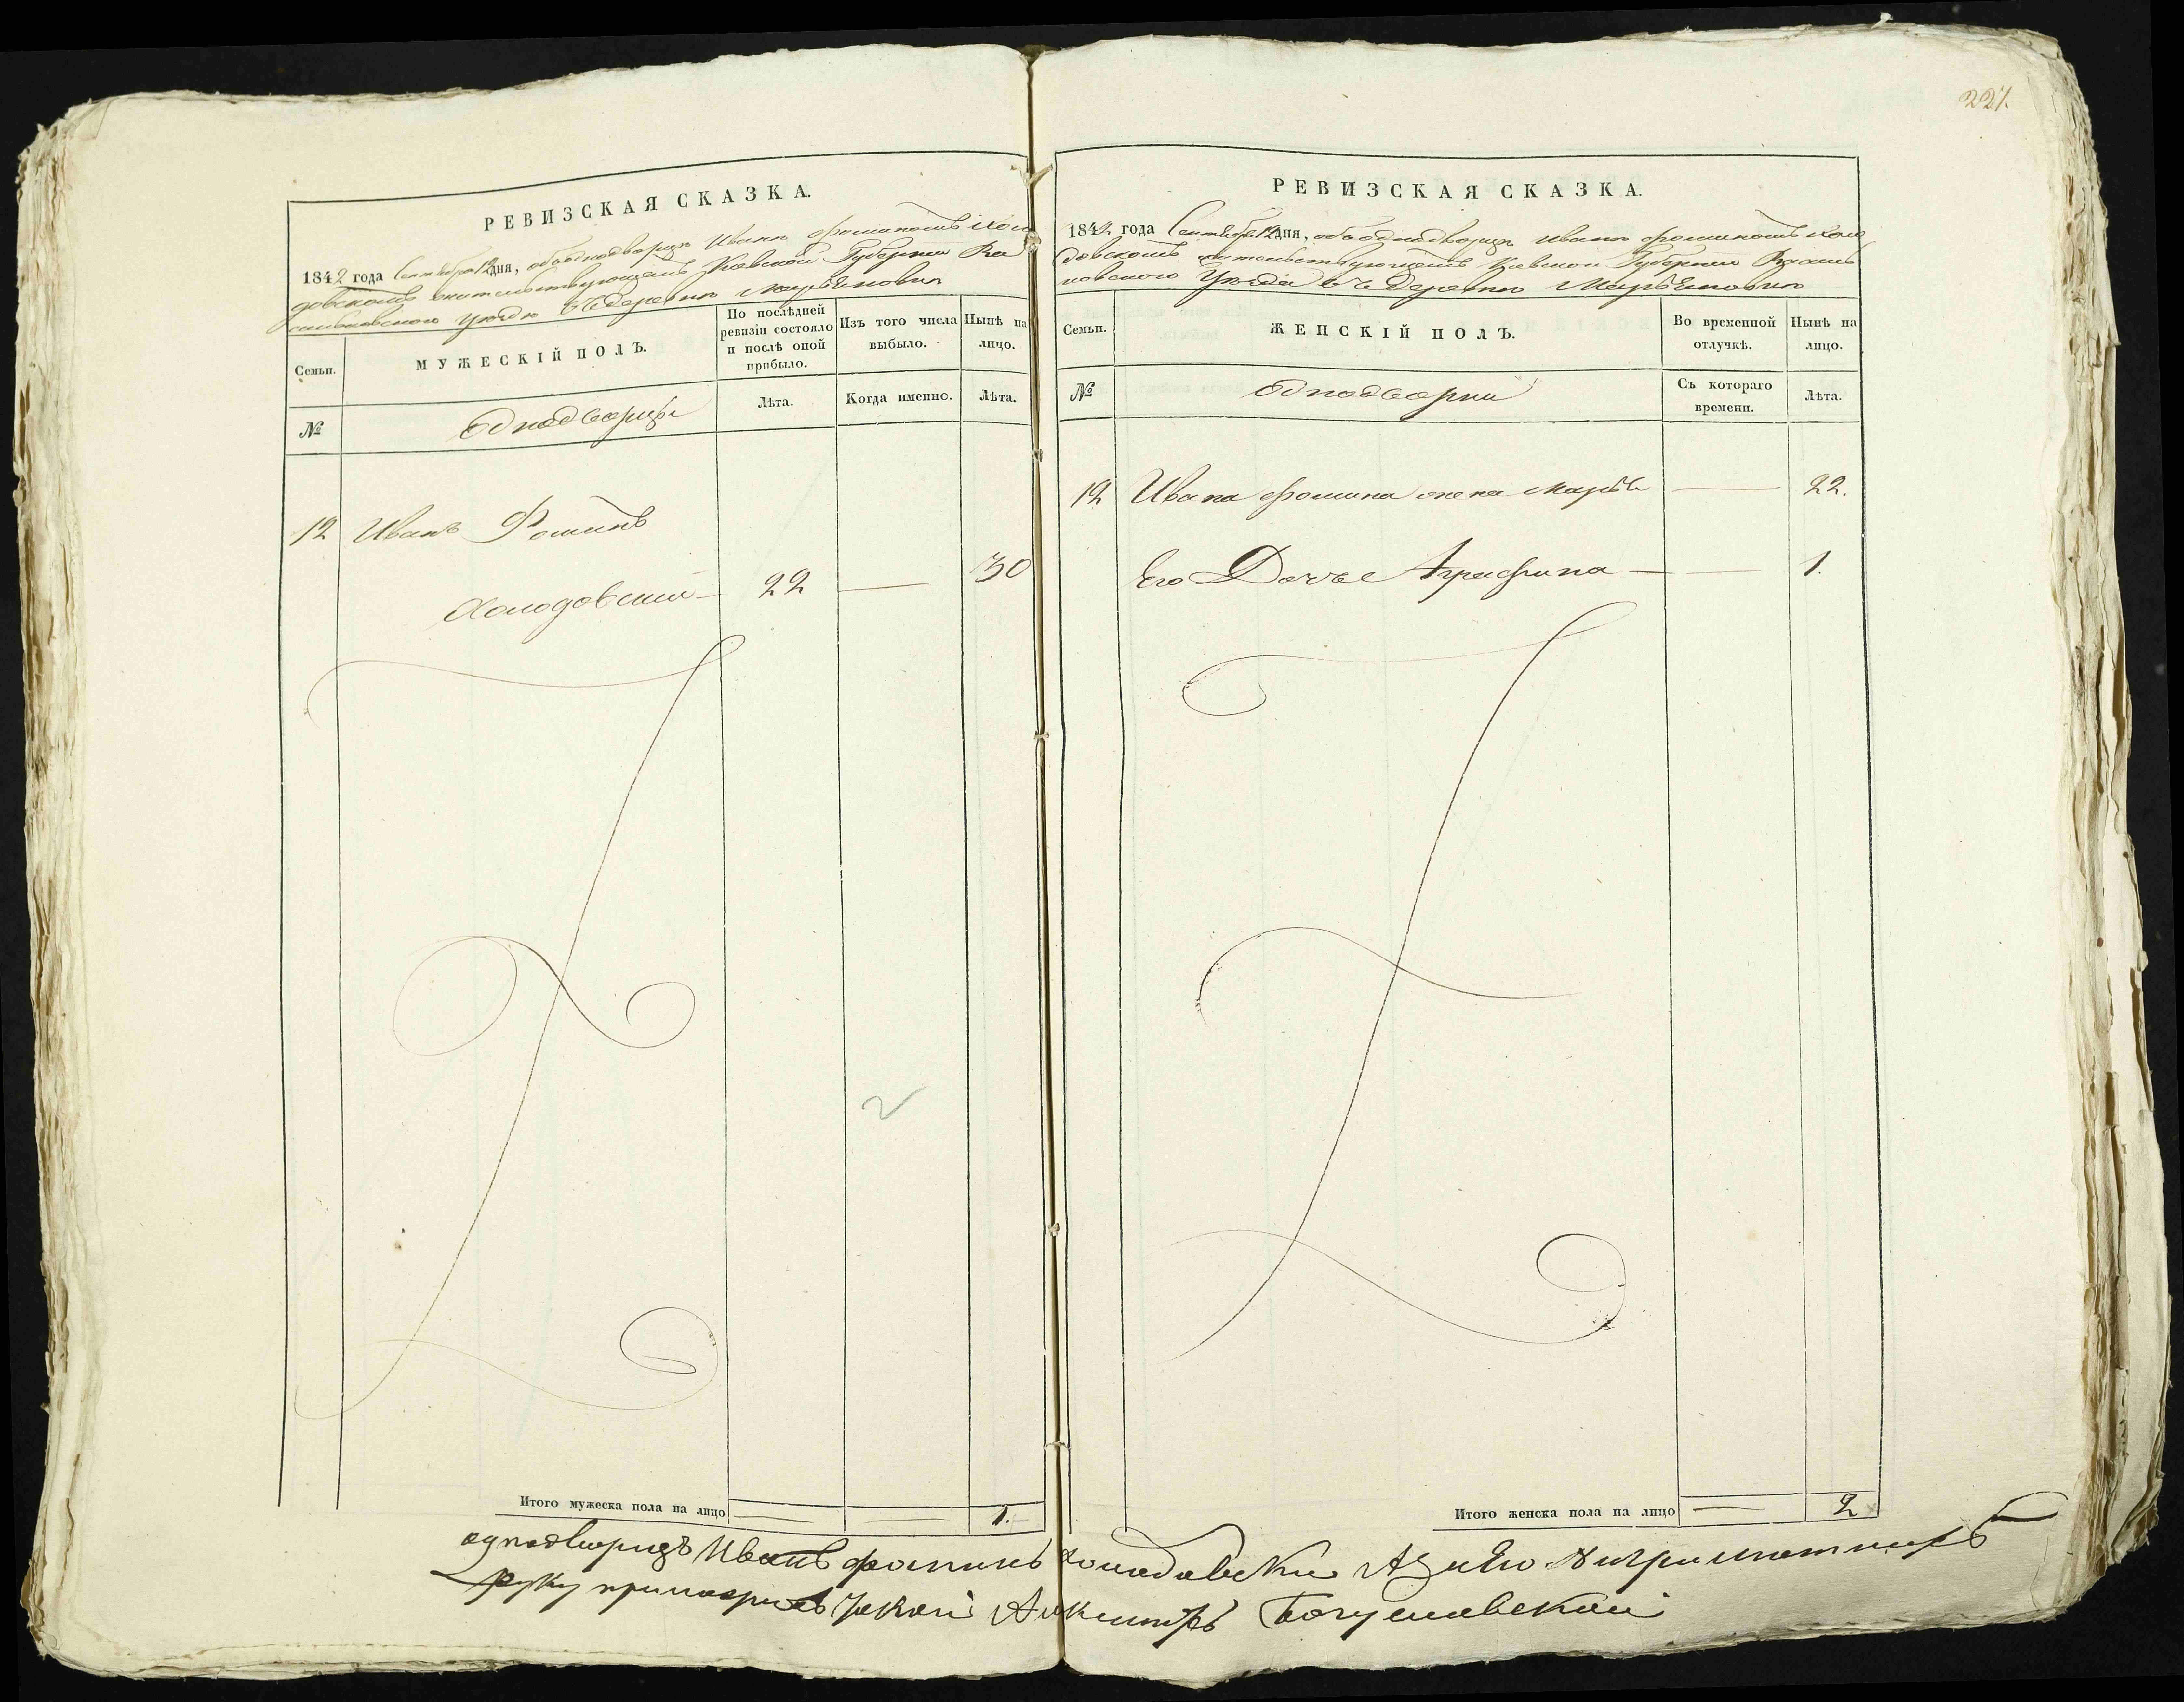 227.
РЕВИЗСКАЯ СКАЗКА.
1842 года Сентября 12 дня, объ однодворце Иване Фоминомъ Холо
довскомъ жительствующемъ Киевской Губернии Ра
уезде в деревне
Семьи.
МУЖЕСКІЙ ПОЛЪ.
По последней
ревизіи состояло
и послѣ оной
прибыло.
Изъ того числа
выбыло.
Нынѣ на
лицо.
№
Однодворцы
Лѣта.
Когда именно.
Лѣта.
12 Иванъ Фоминъ
Холодовский 22 — 30
Итого мужеска пола на лицо — — 1.
РЕВИЗСКАЯ СКАЗКА.
1842 года Сентября 12 дня, объ однодворце Иване Фоминомъ Холо
довскомъ жительствующемъ Киевской Губернии
Уезда в деревне
Семьи.
ЖЕНСКІЙ ПОЛЪ.
Во временной
отлучкѣ.
Нынѣ на
лицо.
№
Однодворки
Съ котораго
времени.
Лѣта.
12 Ивана Фомина жена Марья — 22.
Его Дочь Аграфина — — 1.
Итого женска пола на лицо — 2
однодворецъ Иванъ Фоминъ Холодовски А за его
руку приложилъ Богушевской